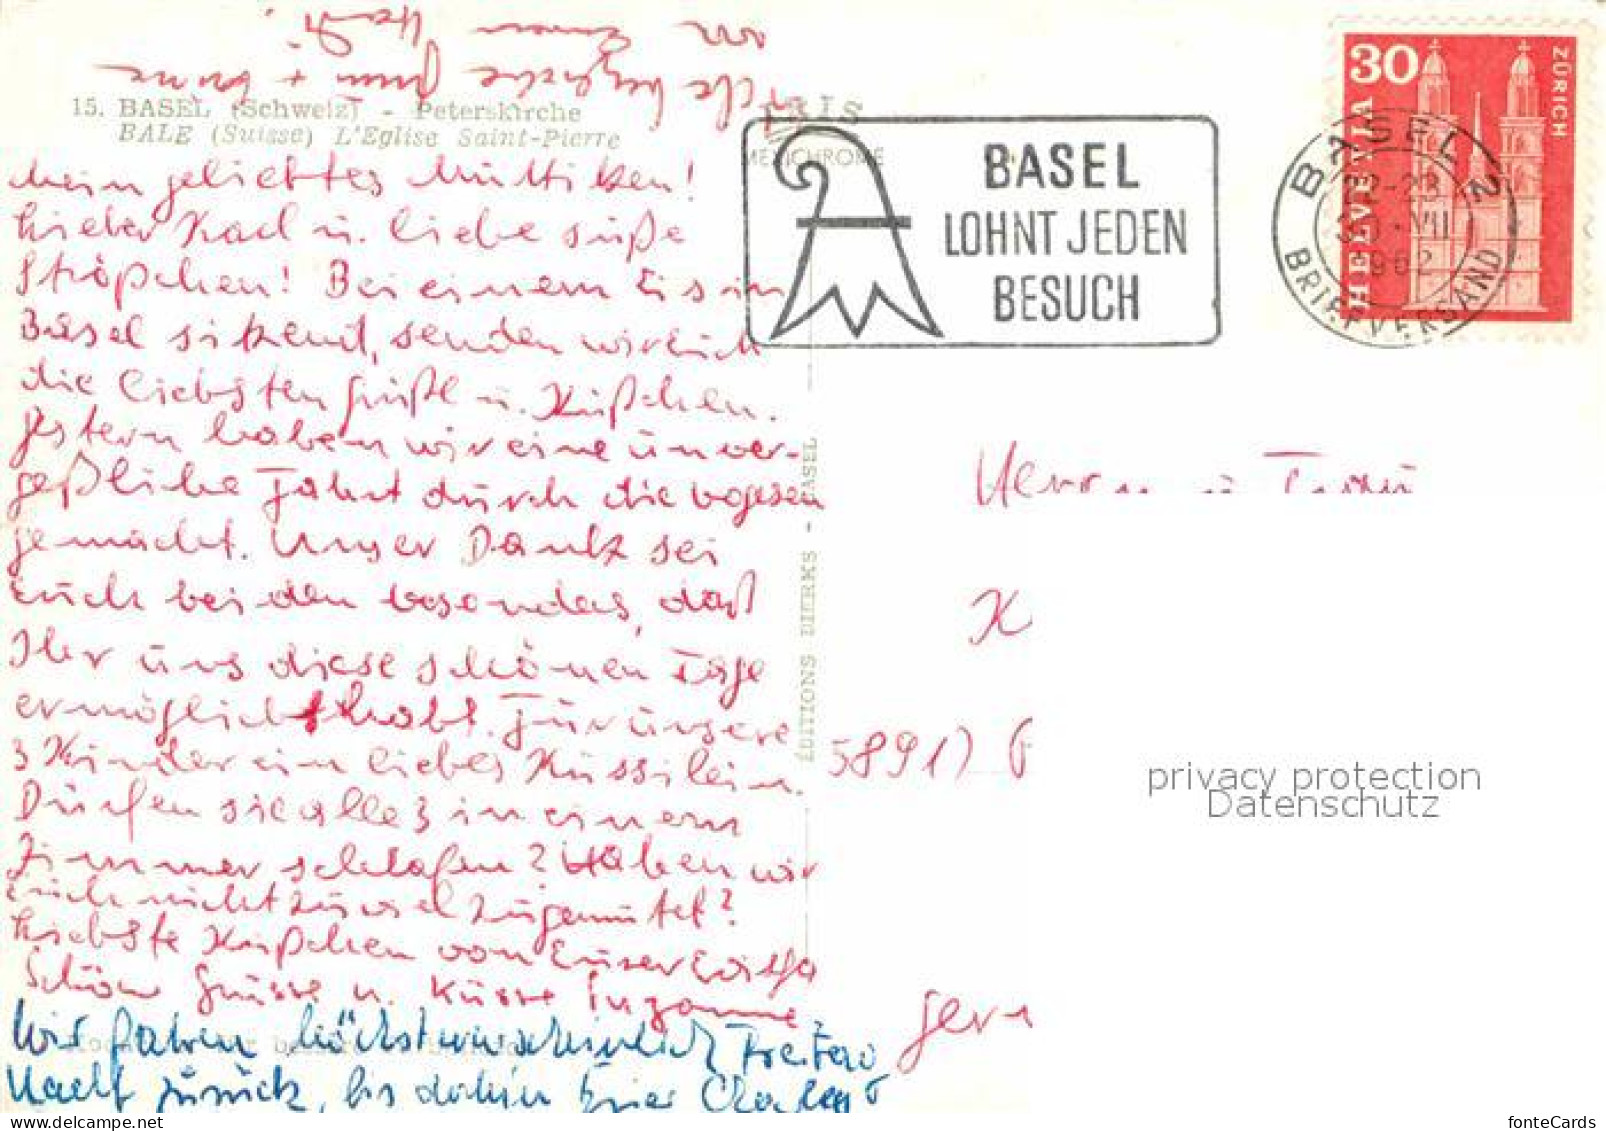 Viele herzliche Grüße + Küsse
von Eurem
Hardi.
15. BASEL (Schweiz) - Peterskirche
BALE (Suisse) L'Eglise Saint-Pierre
IRIS
MEXICHROME
Mein geliebtes Muttilein!
Lieber Karl u. liebe süße
Ströpchen! Bei einem Eis in
Basel sitzend, senden wir Euch
die liebsten Grüße u. Küßchen.
Gestern haben wir eine unver-
geßliche Fahrt durch die Vogesen
gemacht. Unser Dank sei
Euch beiden besonders, daß
Ihr uns diese schönen Tage
ermöglicht habt. Für unsere
3 Kinder ein liebes Küssilein.
Dürfen sie alle 3 in einem
Zimmer schlafen? Haben wir
Euch nicht zuviel zugemutet?
Liebste Küßchen von Eurer
Schöne Grüsse u. Küsse Suzanne
Wir fahren höchstwahrscheinlich Freitag
Nacht zurück, bis dahin Euer
ÉDITIONS DIERKS - BASEL
BASEL
LOHNT JEDEN
BESUCH
30
HELVETIA
ZÜRICH
BASEL 2
22-23
VII
1962
BRIEFVERSAND
Herrn u. Frau
K
5891)
Ger
privacy protection
Datenschutz
fonteCards